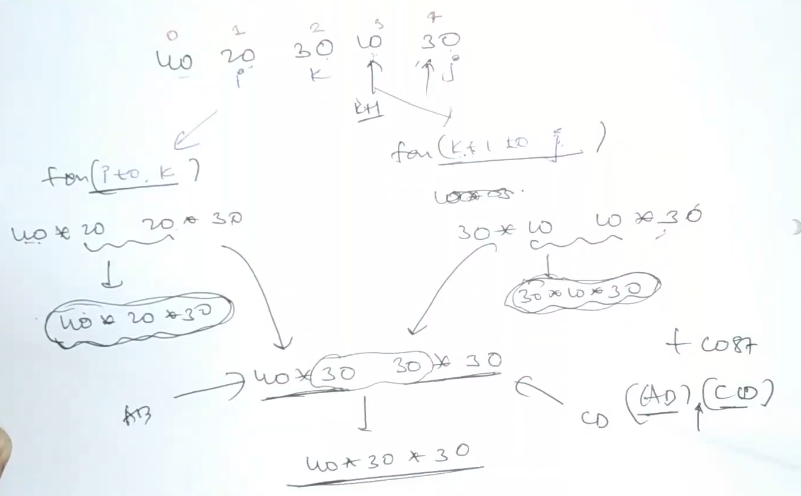 0 1 2 3 4
40 20 30 10 30
i k j
k+1
fun(i to k)
fun(k+1 to j)
40 * 20 20 * 30
30 * 10 10 * 30
40 * 20 * 30
30 * 10 * 30
+ cost
40 * 30 30 * 30
AB
CD
(AB) (CD)
40 * 30 * 30